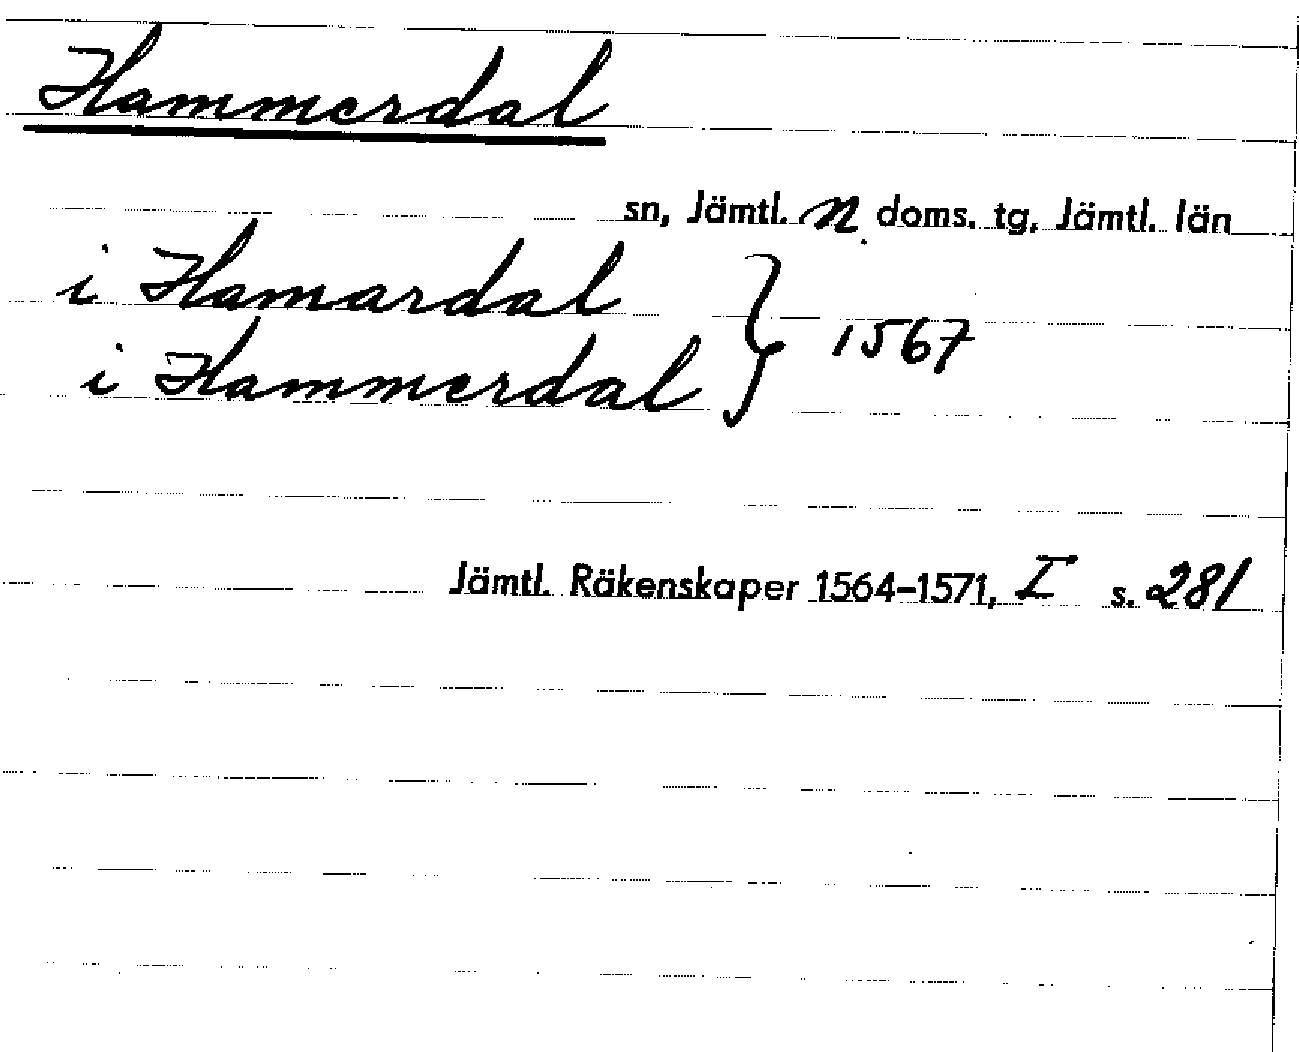 Hammerdal
sn, Jämtl. N. doms. tg, Jämtl. län
i Hamardal
i Hammerdal } 1567
Jämtl. Räkenskaper 1564–1571, I s. 281